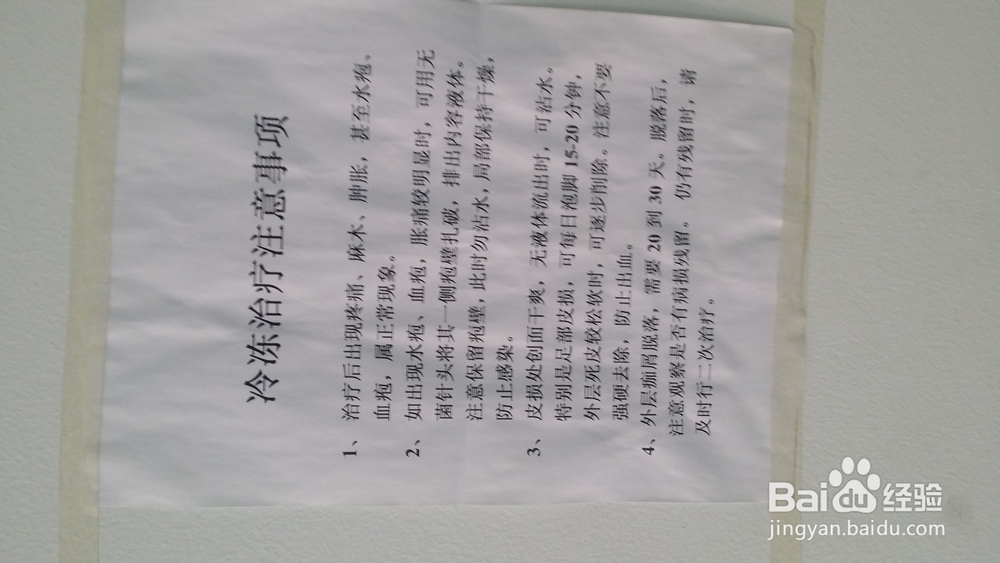 冷冻治疗注意事项
1、治疗后出现疼痛、麻木、肿胀，甚至水疱、
血疱，属正常现象。
2、如出现水疱、血疱，胀痛较明显时，可用无
菌针头将其一侧疱壁扎破，排出内容液体。
注意保留疱壁，此时勿沾水，局部保持干燥，
防止感染。
3、皮损处创面干爽，无液体流出时，可沾水。
特别是足部皮损，可每日泡脚 15-20 分钟，
外层死皮较松软时，可逐步削除。注意不要
强硬去除，防止出血。
4、外层痂屑脱落，需要 20 到 30 天。脱落后，
注意观察是否有病损残留。仍有残留时，请
及时行二次治疗。
Baidu经验
jingyan.baidu.com